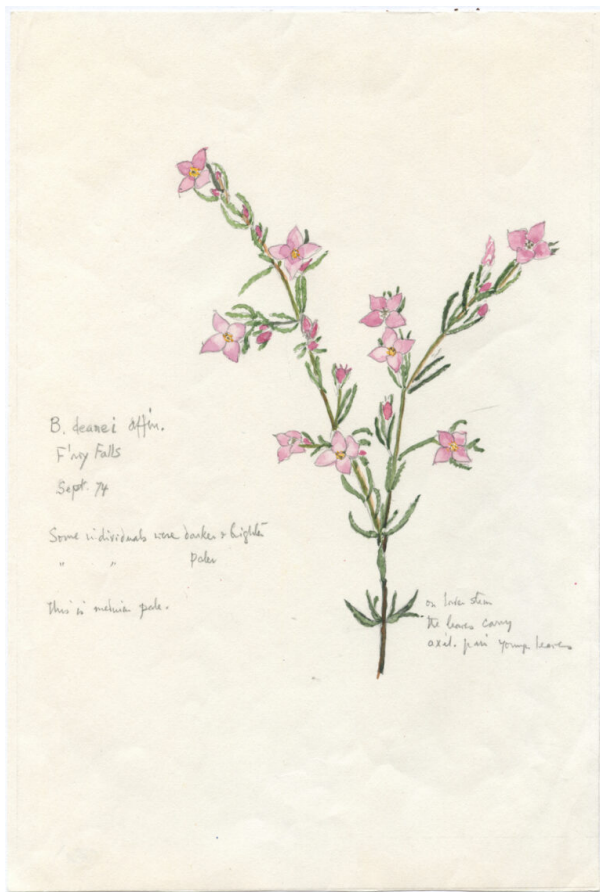 B. deanei affin.
F'roy Falls
Sept. 74
Some individuals were darker & brighter
" " Paler
This is medium pale.
on lower stem
the leaves carry
axil. pair young leaves